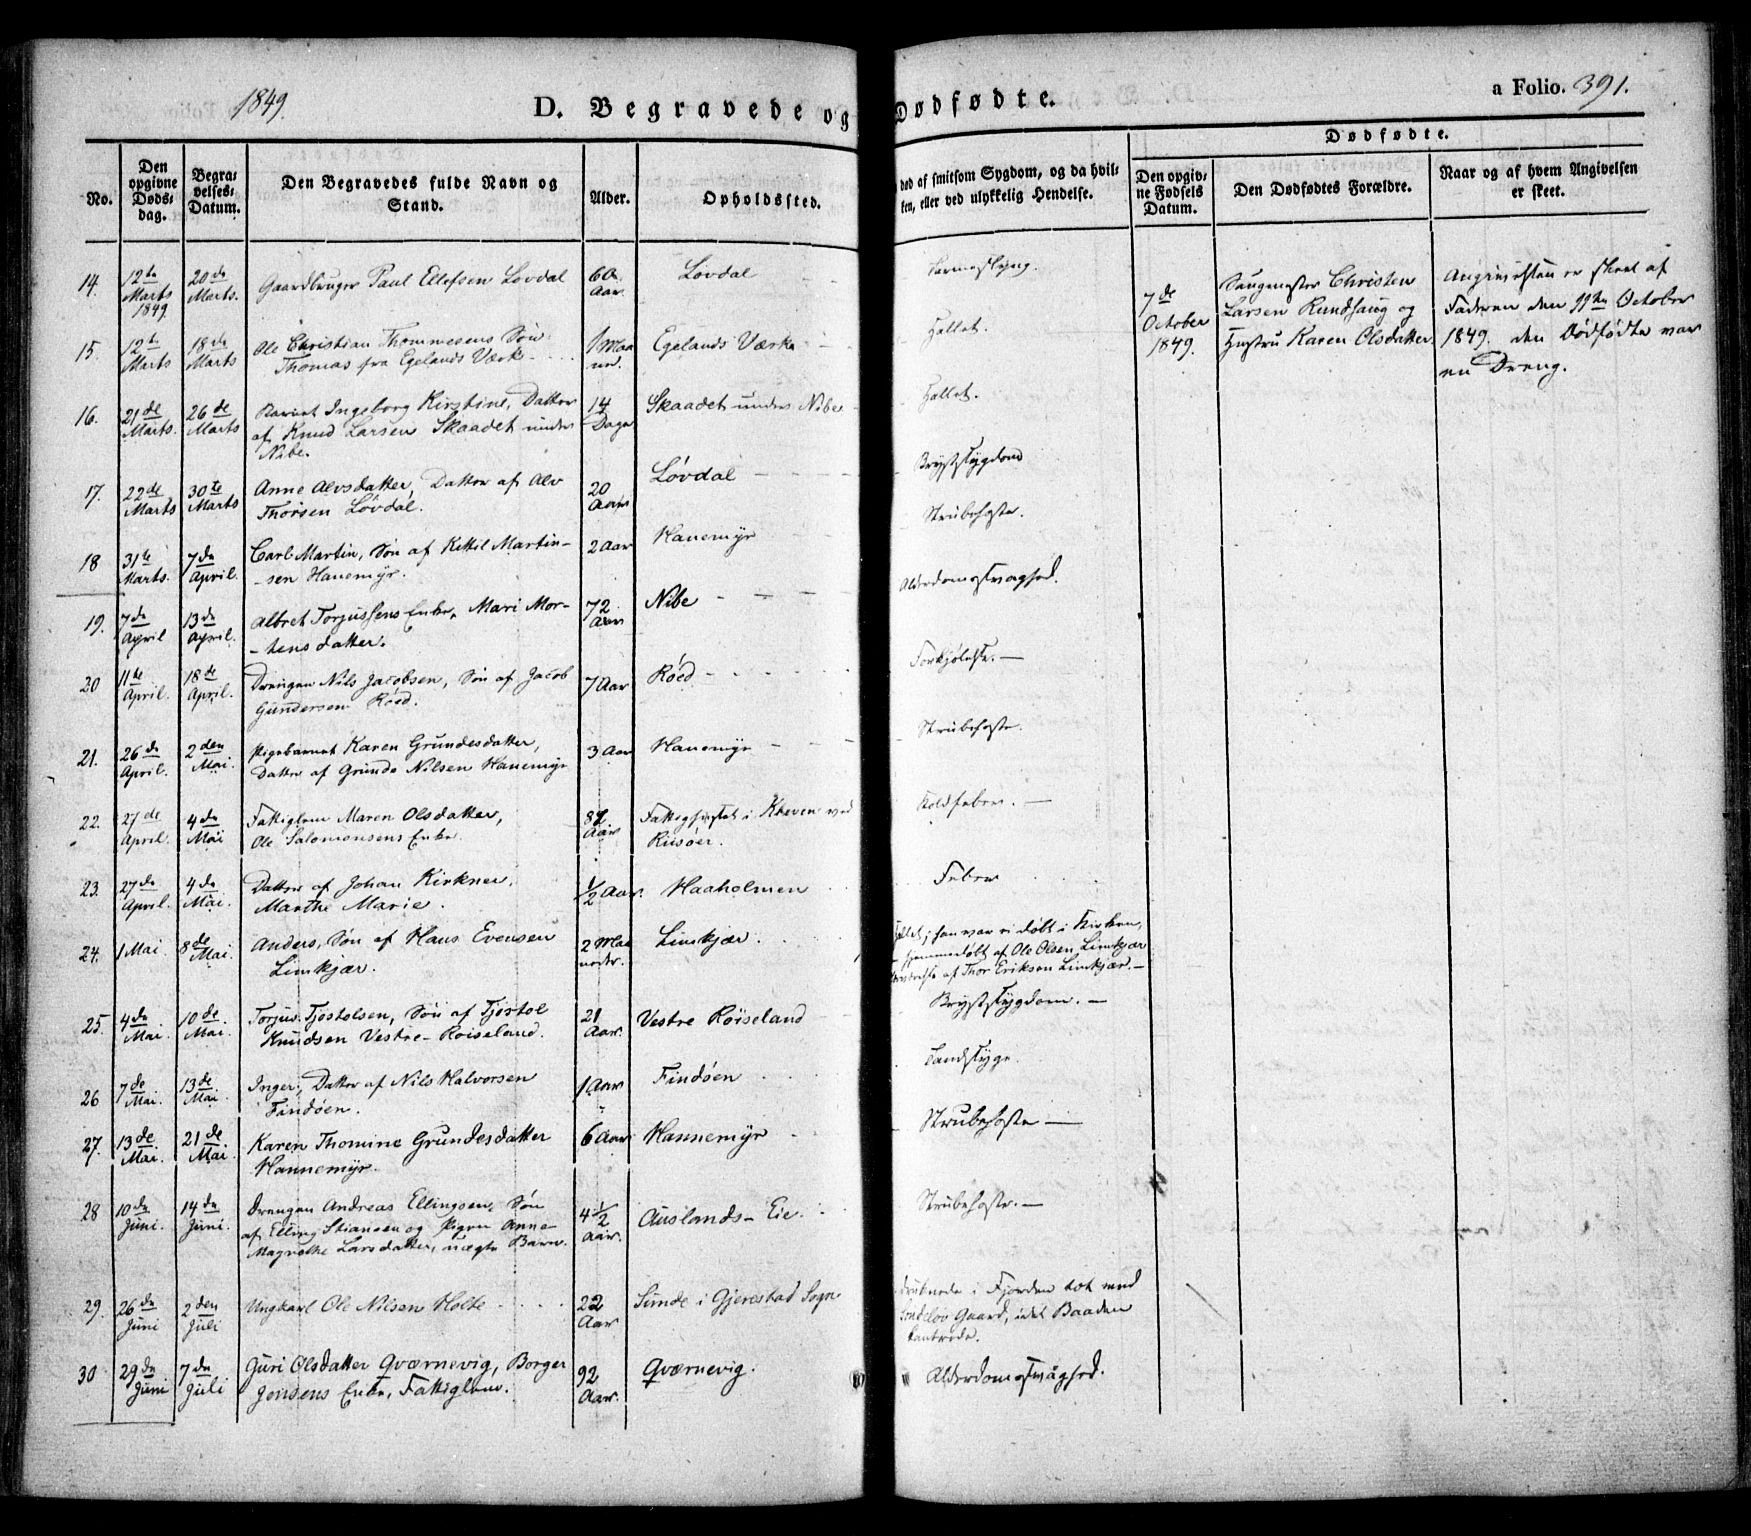 1849.
D. Begravede og Dødfødte.
a Folio. 391.
No.
Den opgivne Døds-dag.
Begra-velses-Datum.
Den Begravedes fulde Navn og Stand.
Alder.
Opholdssted.
død af smitsom Sygdom, og da hvil-
ken, eller ved ulykkelig Hendelse.
Dødfødte.
Den opgiv-ne Fødsels Datum.
Den Dødfødtes Forældre.
Naar og af hvem Angivelsen er skeet.
14. 12te Marts 1849. 20de Marts. Gaardbruger Paul Ellefsen Lovdal 60 Aar Lovdal
15. 12te Marts 18de Marts Ole Christian Thommesens Søn
Thomas fra Egelands Værk 1 Maaned. Egelands Værk Fallet.
16. 21de Marts. 26de Marts Barnet Ingeborg Kirstine, Datter
af Knud Larsen Skaadet under
Nibe. 14 Dage Skaadet under Nibe Fallet.
17. 22de Marts 30te Marts Anne Alvsdatter, Datter af Alv
Thorsen Løvdal. 20 Aar Løvdal Brystsygdom
18 31te Marts. 7de April. Carl Martin, Søn af Kittil Martin-
-sen Hanemyr. 2 Aar Hanemyr Strubehoste.
19. 7de April 13de April. Albret Torjussens Enke, Mari Mor-
-tensdatter. 72 Aar Nibe Alderdomssvaghed.
20 11te April. 18de April. Drengen Nils Jacobsen, Søn af Jacob
Gundersen Röed. 7 Aar Röed Forkjølelse.
21. 26de April. 2den Mai. Pigebarnet Karen Grundesdatter,
Datter af Grunde Nilsen Hanemyr 3 Aar Hanemyr Strubehoste.
22. 27de April. 4de Mai Fattiglem Maren Olsdatter,
Ole Salomonsens Enke. 82 Aar Fattighuset i Kreven ved
Riisöer. Koldfeber.
23. 27de April. 4de Mai. Datter af Johan Kirkner,
Marthe Marie. 1/2 Aar. Haaholmen Feber
24. 1 Mai 8de Mai. Anders, Søn af Hans Evensen
Limkjær. 2 Maaneder. Limkjær. Fallet; han var ei døbt i Kirken,
hjemmedøbt af Ole Olsen Limkjær
af Thor Eriksen Limkjær.
25 4de Mai. 10de Mai. Torjus Tjøstolsen, Søn af Tjøstol
Knudsen Vestre-Roiseland. 21 Aar. Vestre Röiseland Brystsygdom.
26 7de Mai. 13de Mai. Inger, Datter af Nils Halvorsen
Findöen. 1 Aar Findöen Landsyge.
27. 13de Mai. 21de Mai. Karen Thomine Grundesdatter
Hannemyr. 6 Aar Hannemyr Strubehoste
28 10de Juni. 14de Juni. Drengen Andreas Ellingsen, Søn
af Elling Stiansen og Pigen Anne
Magrethe Larsdatter, uægte Barn. 4 1/2 Aar. Auslands-Eie. Strubehoste.
29. 26de Juni 2den Juli Ungkarl Ole Nilsen Holte 22 Aar Sunde i Gjerestad Sogn druknede i Fjorden tæt med
Gaard, idet Baaden
kantrede.
30 29de Juni 7de Juli Guri Olsdatter Qværnevig, Borger
Jensens Enke, Fattiglem. 92 Aar. Qværnevig. Alderdomssvaghed.
7de October 1849. Christen
Larsen Rundhaug og
Hustru Karen Olsdatter.
Angivelsen er skeet af
Faderen den 11te October
1849. den Dødfødte var
en Dreng.